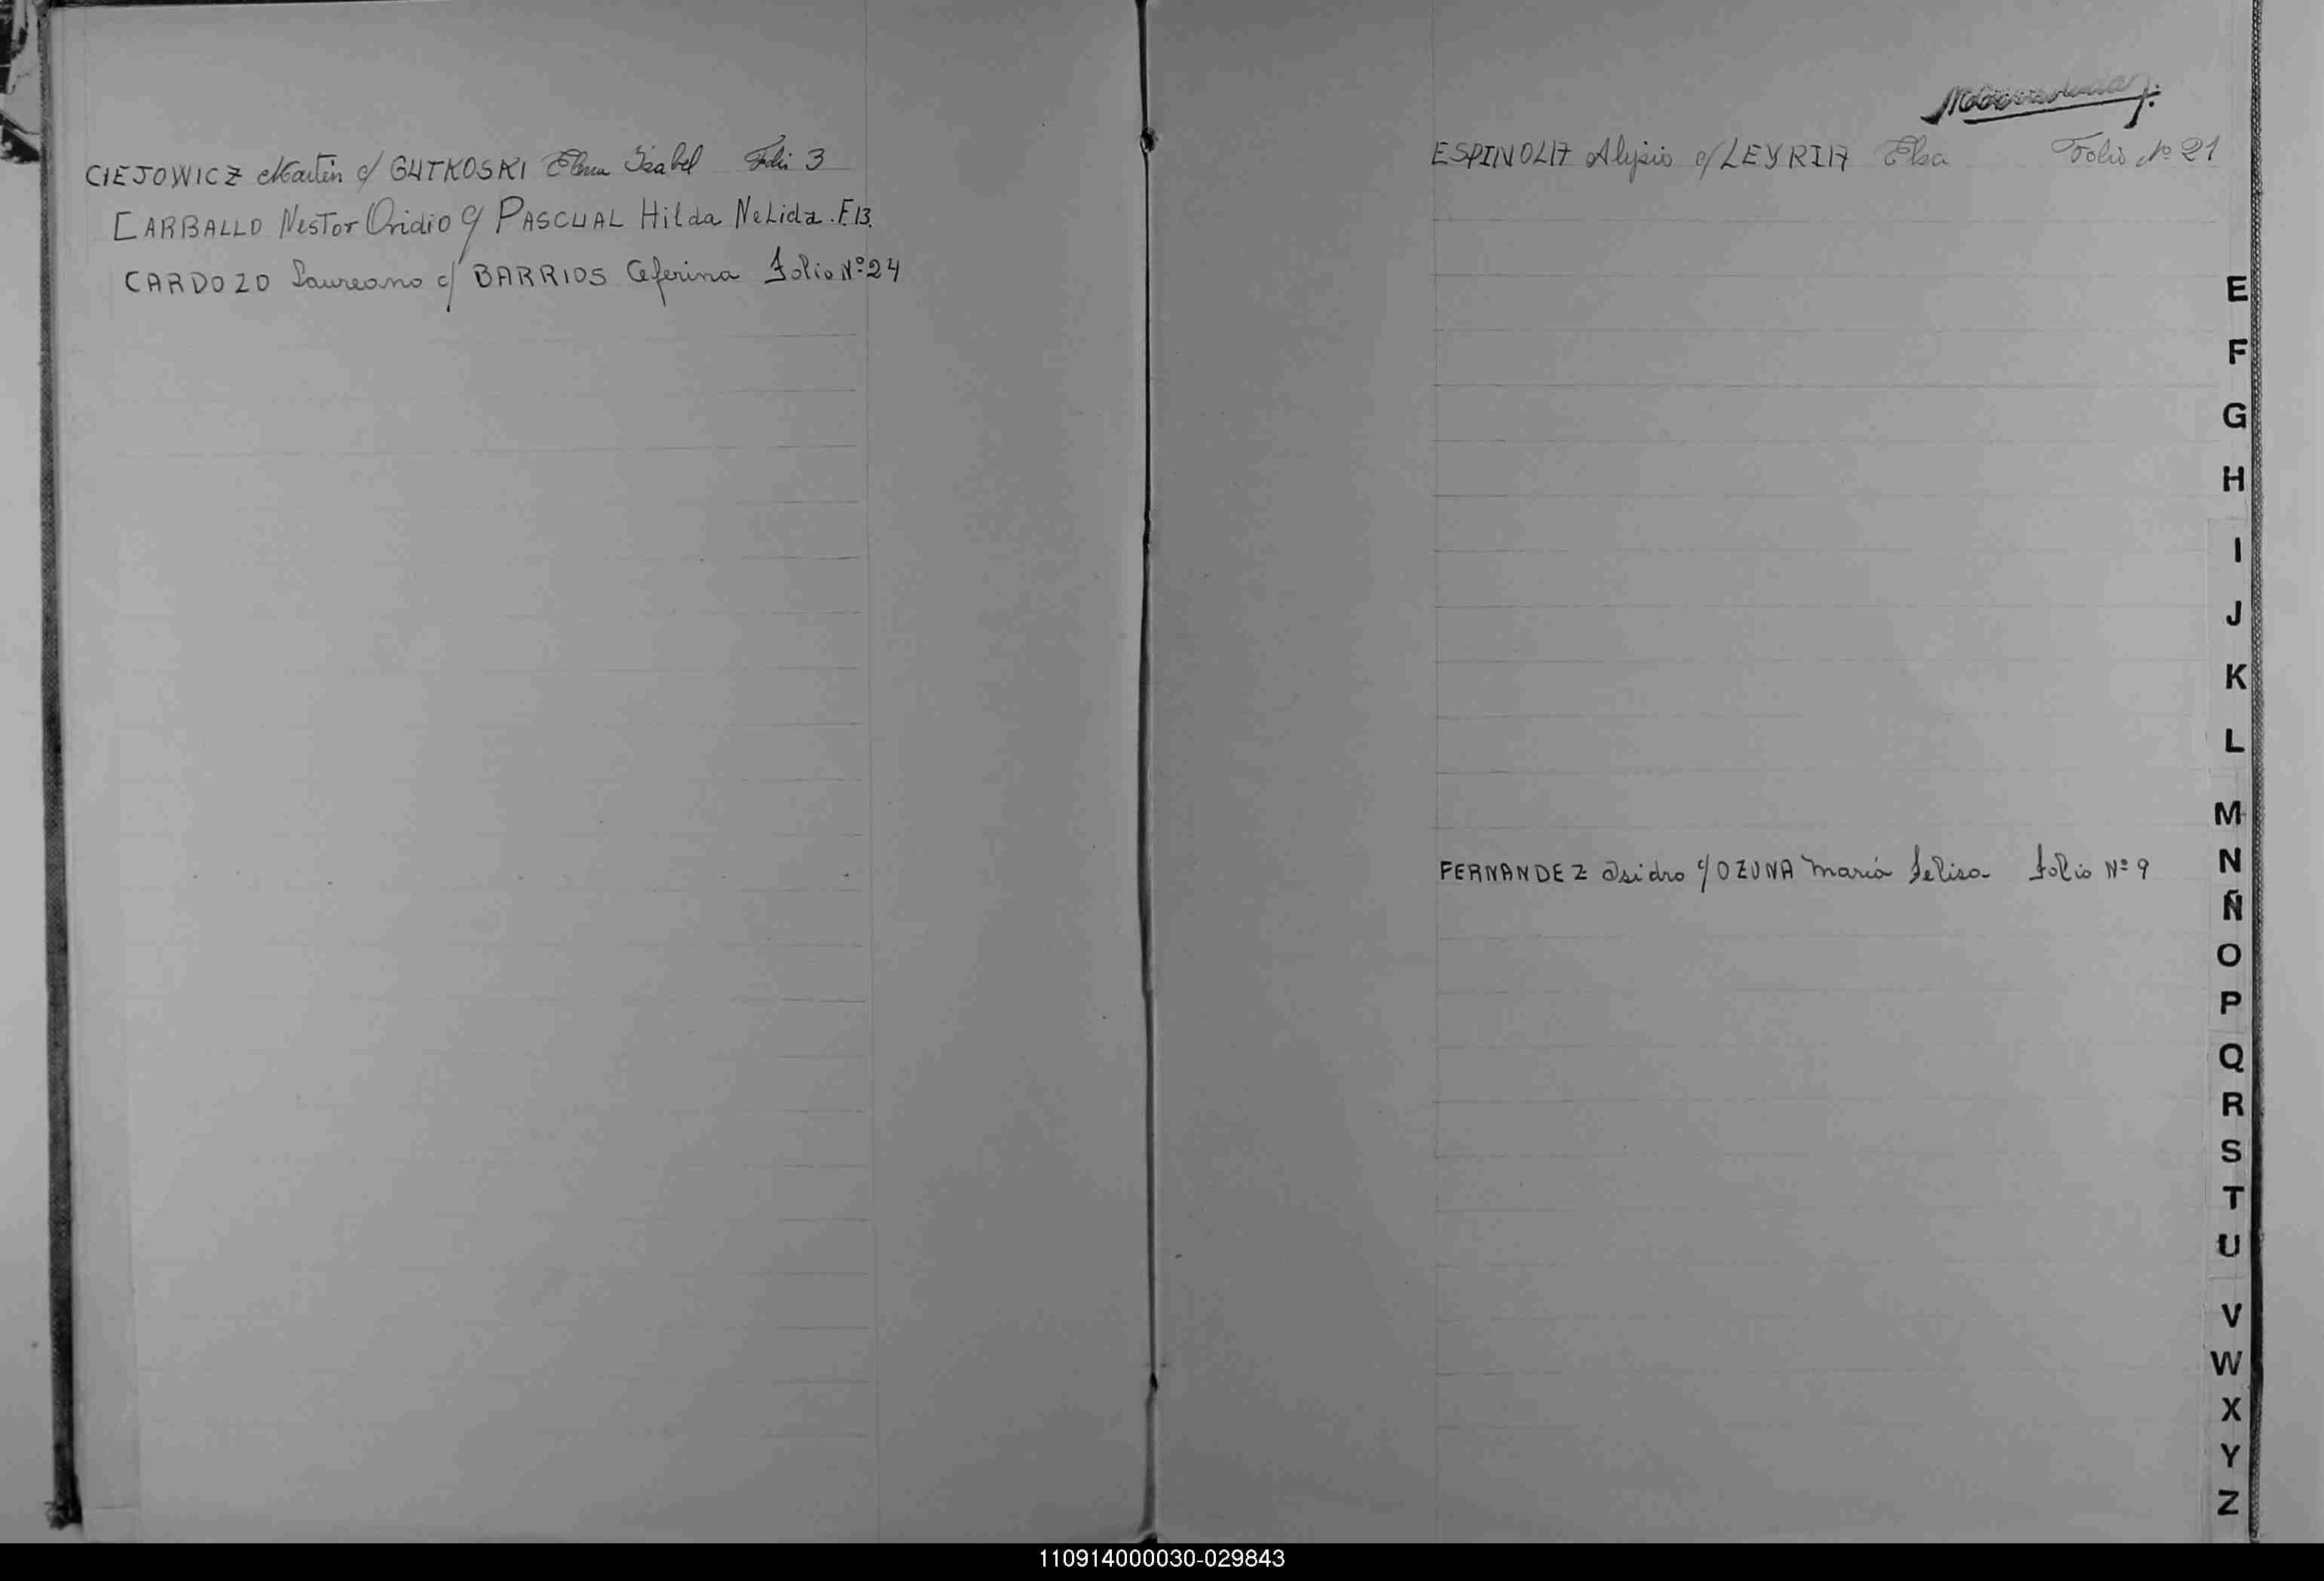 CIEJOWICZ Martin c/ GUTKOSKI Elena Isabel Folio 3
CARBALLO NesTor Ovidio c/ PASCUAL Hilda NeLida. F.13.
CARDOZO Laureano c/ BARRIOS Ceferina Folio Nº 24
ESPINOLA Alipio c/ LEYRIA Elsa Folio Nº 21
E
F
G
H
I
J
K
L
M
FERNANDEZ Isidro c/ OZUNA María Felisa Folio Nº 9
N
Ñ
O
P
Q
R
S
T
U
V
W
X
Y
Z
110914000030-029843